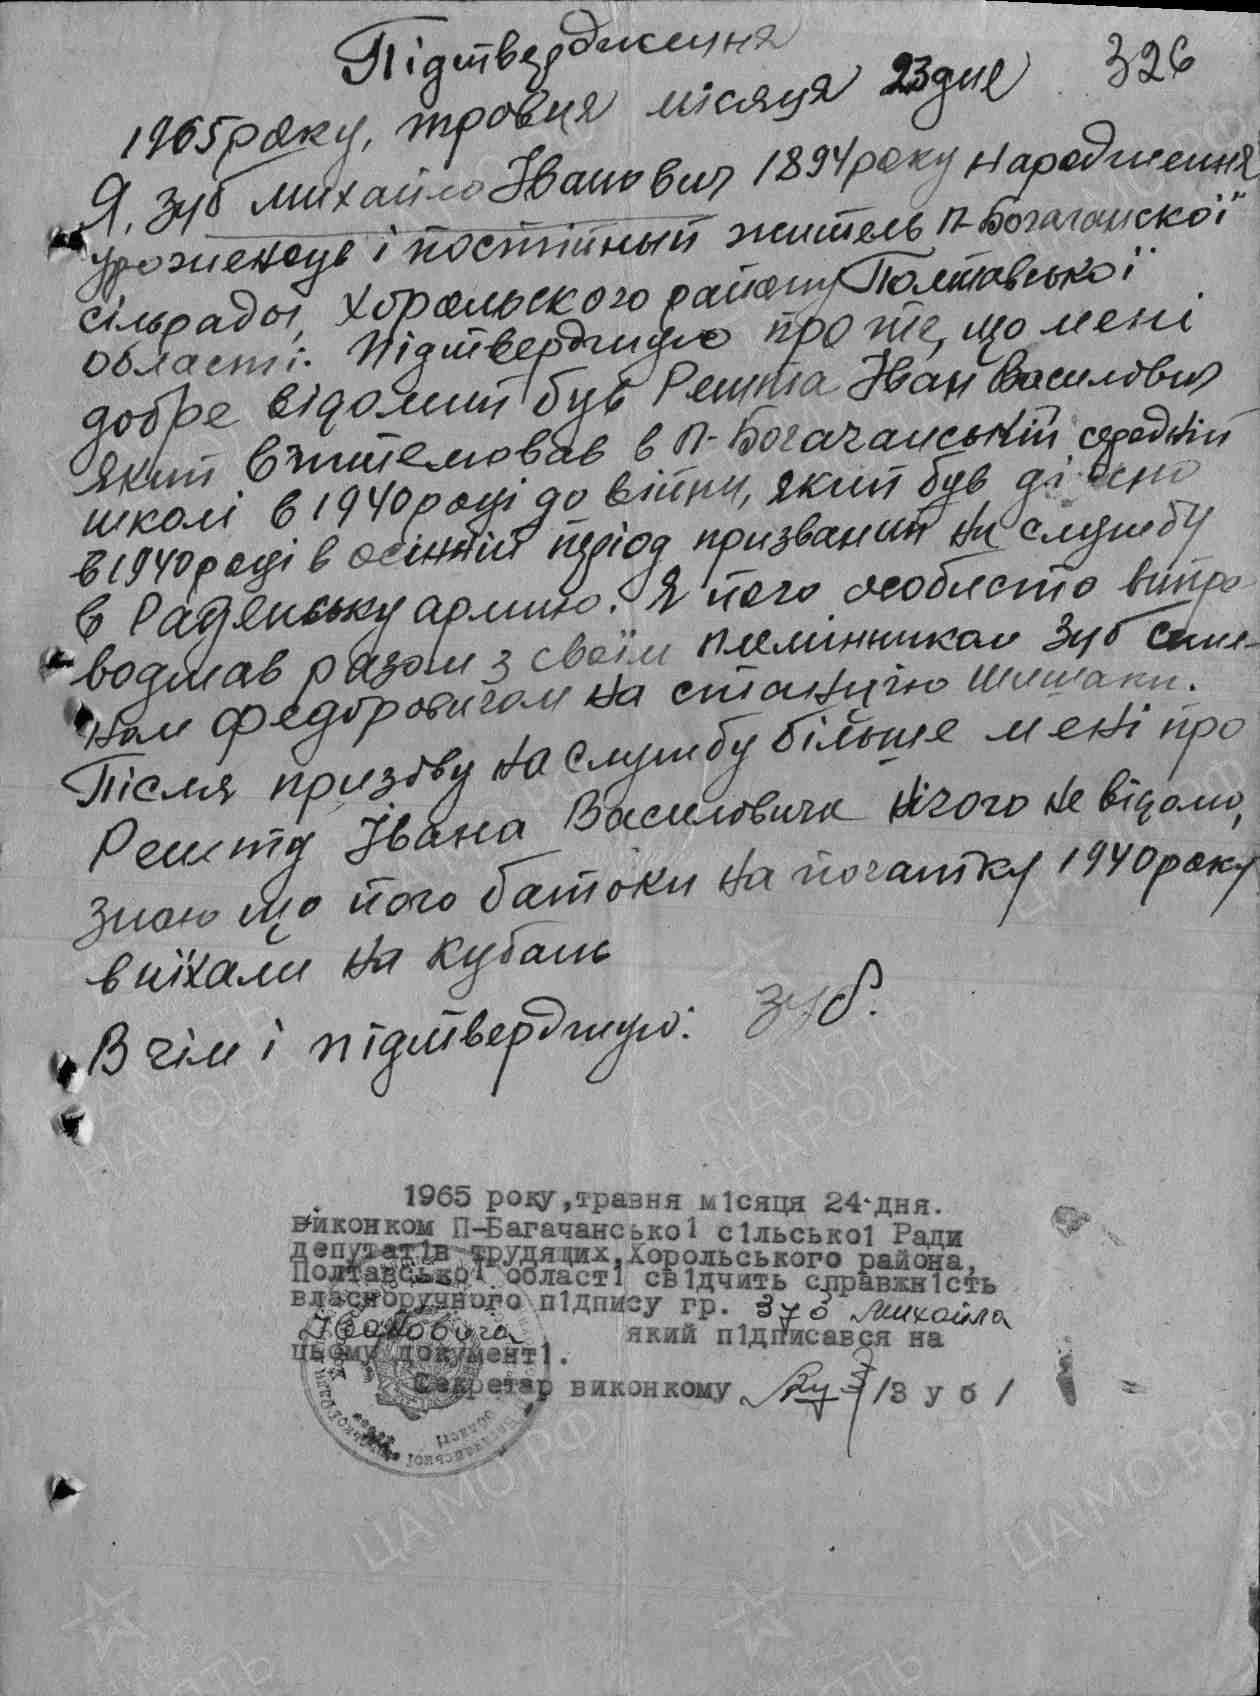 Підтвердження
326
1965 року, травня місяця 23 дня
Я, Зуб Михайло Іванович 1894 року народження
уроженець і постійный житель П-Богачанскої
сільради, Хорольского району Полтавської
області. Підтверджую про те, що мені
добре відомий був Решта Іван Василович
який вчителював в П-Богачанській середній
школі в 1940 році до війни, який був дійсно
в 1940 році в осінній період призваний на службу
в Радянську армию. Я його особисто випро-
воджав разом з своїм племінником Зуб Семе-
ном Федоровичом на станцію Шишаки.
Після призову на службу більше мені про
Решту Івана Василовича нічого не відомо,
знаю що його батьки на початку 1940 року
виїхали на Кубань
В чім і підтверджую: Зуб.
1965 року,травня м1сяця 24 дня.
виконком П-Багачансько1 с1льсько1 Ради
депутат1в трудящих,Хорольського района,
Полтавсько1 област1 св1дчить справжн1сть
власноручного п1дпису гр. Зуб Михайла
Івановича який п1дписався на
цьому документ1.
Секретар виконкому /З у б /
ЦАМО РФ
ПАМЯТЬ
НАРОДА